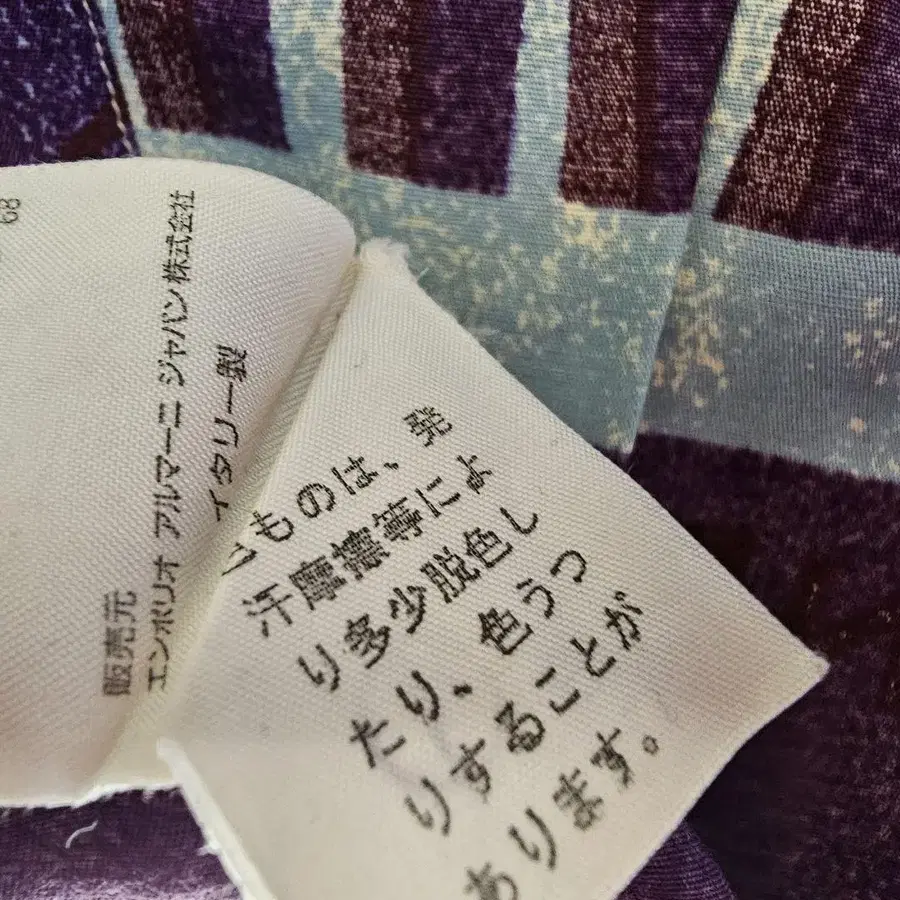 68
販売元
エンポリオ アルマーニ ジャパン 株式会社
イタリー製
ものは、発
汗摩擦等によ
り多少脱色し
たり、色うつ
りすることが
あります。